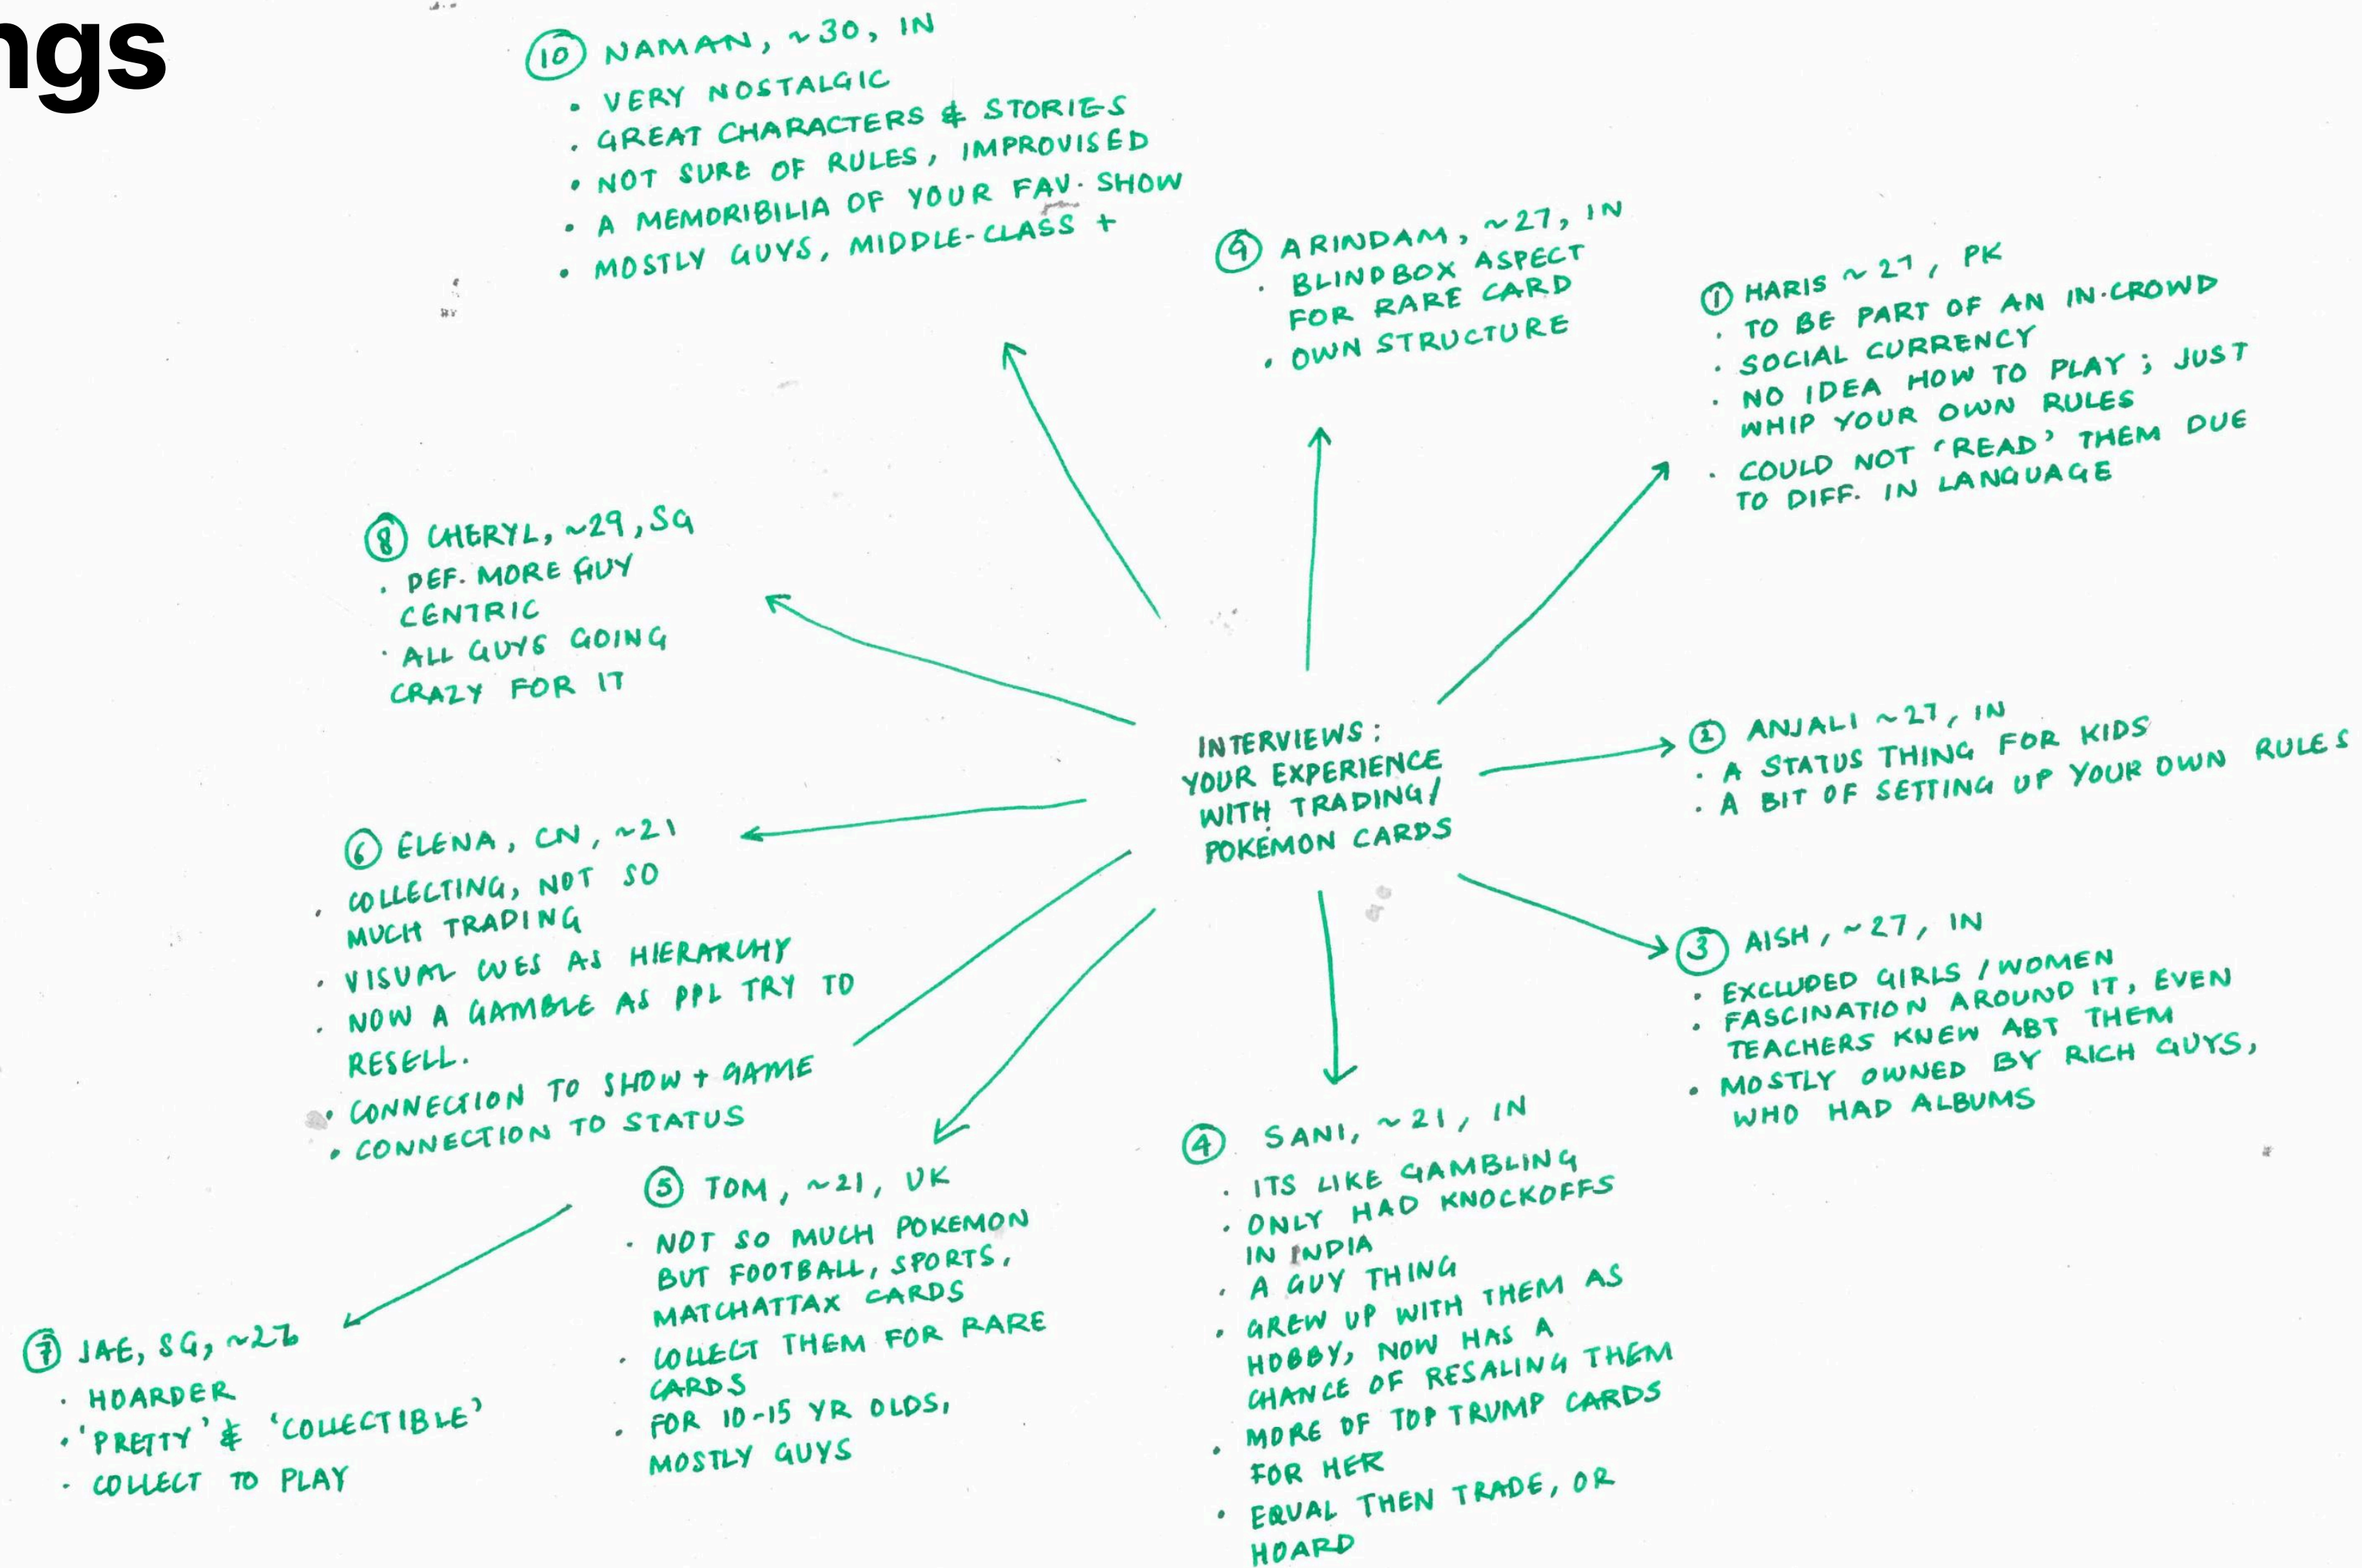 ngs
INTERVIEWS:
YOUR EXPERIENCE
WITH TRADING/
POKÉMON CARDS
① HARIS ~27, PK
· TO BE PART OF AN IN-CROWD
· SOCIAL CURRENCY
· NO IDEA HOW TO PLAY; JUST
WHIP YOUR OWN RULES
· COULD NOT 'READ' THEM DUE
TO DIFF. IN LANGUAGE
② ANJALI ~27, IN
· A STATUS THING FOR KIDS
· A BIT OF SETTING UP YOUR OWN RULES
③ AISH, ~27, IN
· EXCLUDED GIRLS / WOMEN
· FASCINATION AROUND IT, EVEN
TEACHERS KNEW ABT THEM
· MOSTLY OWNED BY RICH GUYS,
WHO HAD ALBUMS
④ SANI, ~21, IN
· ITS LIKE GAMBLING
· ONLY HAD KNOCKOFFS
IN INDIA
· A GUY THING
· GREW UP WITH THEM AS
HOBBY, NOW HAS A
CHANCE OF RESALING THEM
· MORE OF TOP TRUMP CARDS
FOR HER
· EQUAL THEN TRADE, OR
HOARD
⑤ TOM, ~21, UK
· NOT SO MUCH POKEMON
BUT FOOTBALL, SPORTS,
MATCHATTAX CARDS
· COLLECT THEM FOR RARE
CARDS
· FOR 10-15 YR OLDS,
MOSTLY GUYS
⑥ ELENA, CN, ~21
· COLLECTING, NOT SO
MUCH TRADING
· VISUAL CUES AS HIERARCHY
· NOW A GAMBLE AS PPL TRY TO
RESELL.
· CONNECTION TO SHOW + GAME
· CONNECTION TO STATUS
⑦ JAE, SG,
· HOARDER
· 'PRETTY' & 'COLLECTIBLE'
· COLLECT TO PLAY
⑧ CHERYL, ~29, SG
· DEF. MORE GUY
CENTRIC
· ALL GUYS GOING
CRAZY FOR IT
⑨ ARINDAM, ~27, IN
· BLINDBOX ASPECT
FOR RARE CARD
· OWN STRUCTURE
⑩ NAMAN, ~30, IN
· VERY NOSTALGIC
· GREAT CHARACTERS & STORIES
· NOT SURE OF RULES, IMPROVISED
· A MEMORIBILIA OF YOUR FAV. SHOW
· MOSTLY GUYS, MIDDLE-CLASS +